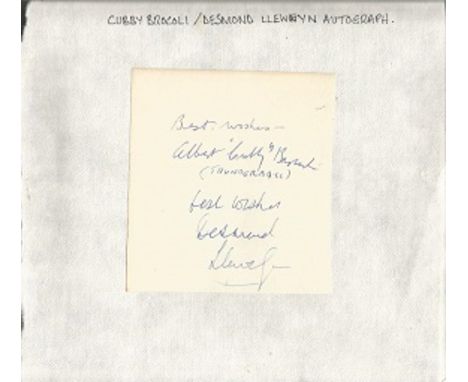 CUBBY BROCOLI / DESMOND LLEWEYN AUTOGRAPH.
Best wishes –
Albert "Cubby" Broccoli
(THUNDERBALL)
best wishes
Desmond
Llewelyn